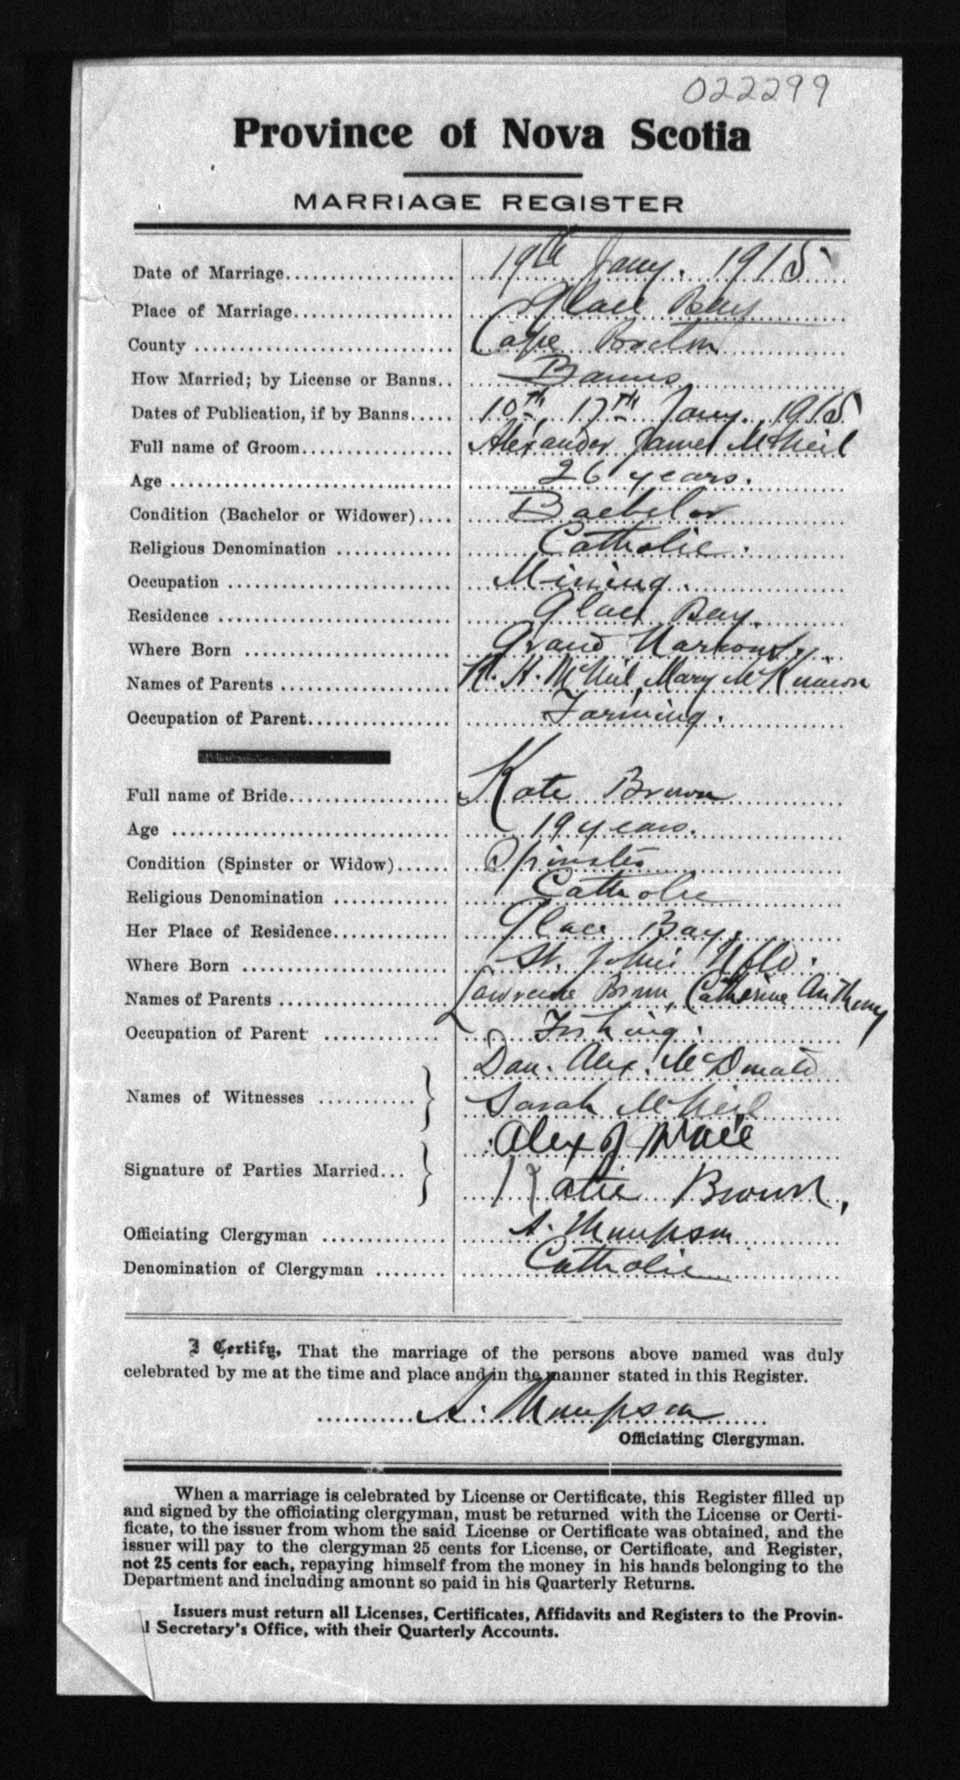 022299
Province of Nova Scotia
MARRIAGE REGISTER
Date of Marriage 19th Jany. 1915
Place of Marriage Glace Bay
County Cape Breton
How Married; by License or Banns Banns
Dates of Publication, if by Banns 10th 17th Jany. 1915
Full name of Groom Alexander James McNeil
Age 26 years.
Condition (Bachelor or Widower) Bachelor
Religious Denomination Catholic.
Occupation Mining.
Residence Glace Bay.
Where Born Grand Narrows.
Names of Parents H. McNeil, Mary McKinnon
Occupation of Parent Farming.
Full name of Bride Kate Brown
Age 19 years.
Condition (Spinster or Widow) Spinster
Religious Denomination Catholic
Her Place of Residence Glace Bay.
Where Born St. Johns Nfld.
Names of Parents Lawrence Brown, Catherine Anthony
Occupation of Parent Fishing.
Dan. Alex. McDonald
Names of Witnesses
Sarah McNeil
Alex J McNeil
Signature of Parties Married
Katie Brown,
Officiating Clergyman A. Thompson
Denomination of Clergyman Catholic
I Certify, That the marriage of the persons above named was duly
celebrated by me at the time and place and in the manner stated in this Register.
A. Thompson
Officiating Clergyman.
When a marriage is celebrated by License or Certificate, this Register filled up
and signed by the officiating clergyman, must be returned with the License or Certi-
ficate, to the issuer from whom the said License or Certificate was obtained, and the
issuer will pay to the clergyman 25 cents for License, or Certificate, and Register,
not 25 cents for each, repaying himself from the money in his hands belonging to the
Department and including amount so paid in his Quarterly Returns.
Issuers must return all Licenses, Certificates, Affidavits and Registers to the Provin-
l Secretary's Office, with their Quarterly Accounts.